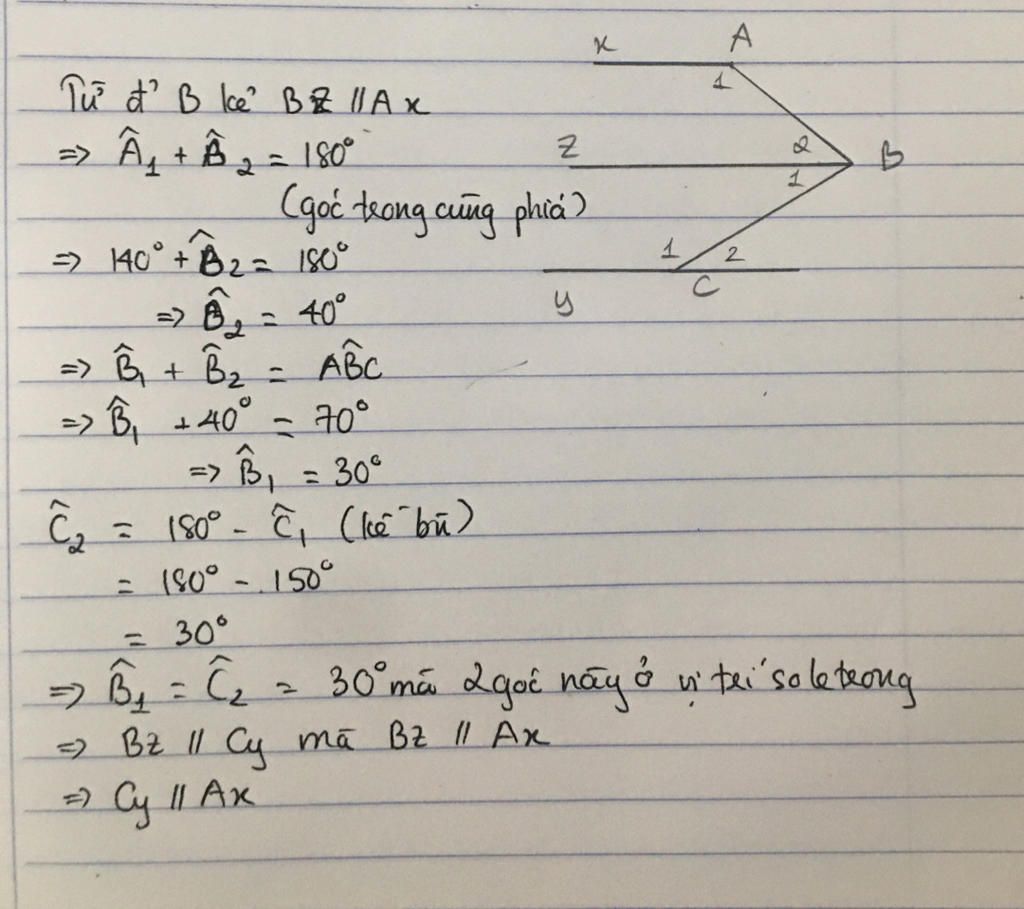 Từ đ' B kẻ Bz // Ax
=> Â₁ + B̂₂ = 180°
(góc trong cùng phía)
=> 140° + B̂₂ = 180°
=> B̂₂ = 40°
=> B̂₁ + B̂₂ = AB̂C
=> B̂₁ + 40° = 70°
=> B̂₁ = 30°
Ĉ₂ = 180° - Ĉ₁ (kề bù)
= 180° - 150°
= 30°
=> B̂₁ = Ĉ₂ = 30° mà 2 góc này ở vị trí so le trong
=> Bz // Cy mà Bz // Ax
=> Cy // Ax
x A
1
z 2 B
1
1 2
y C